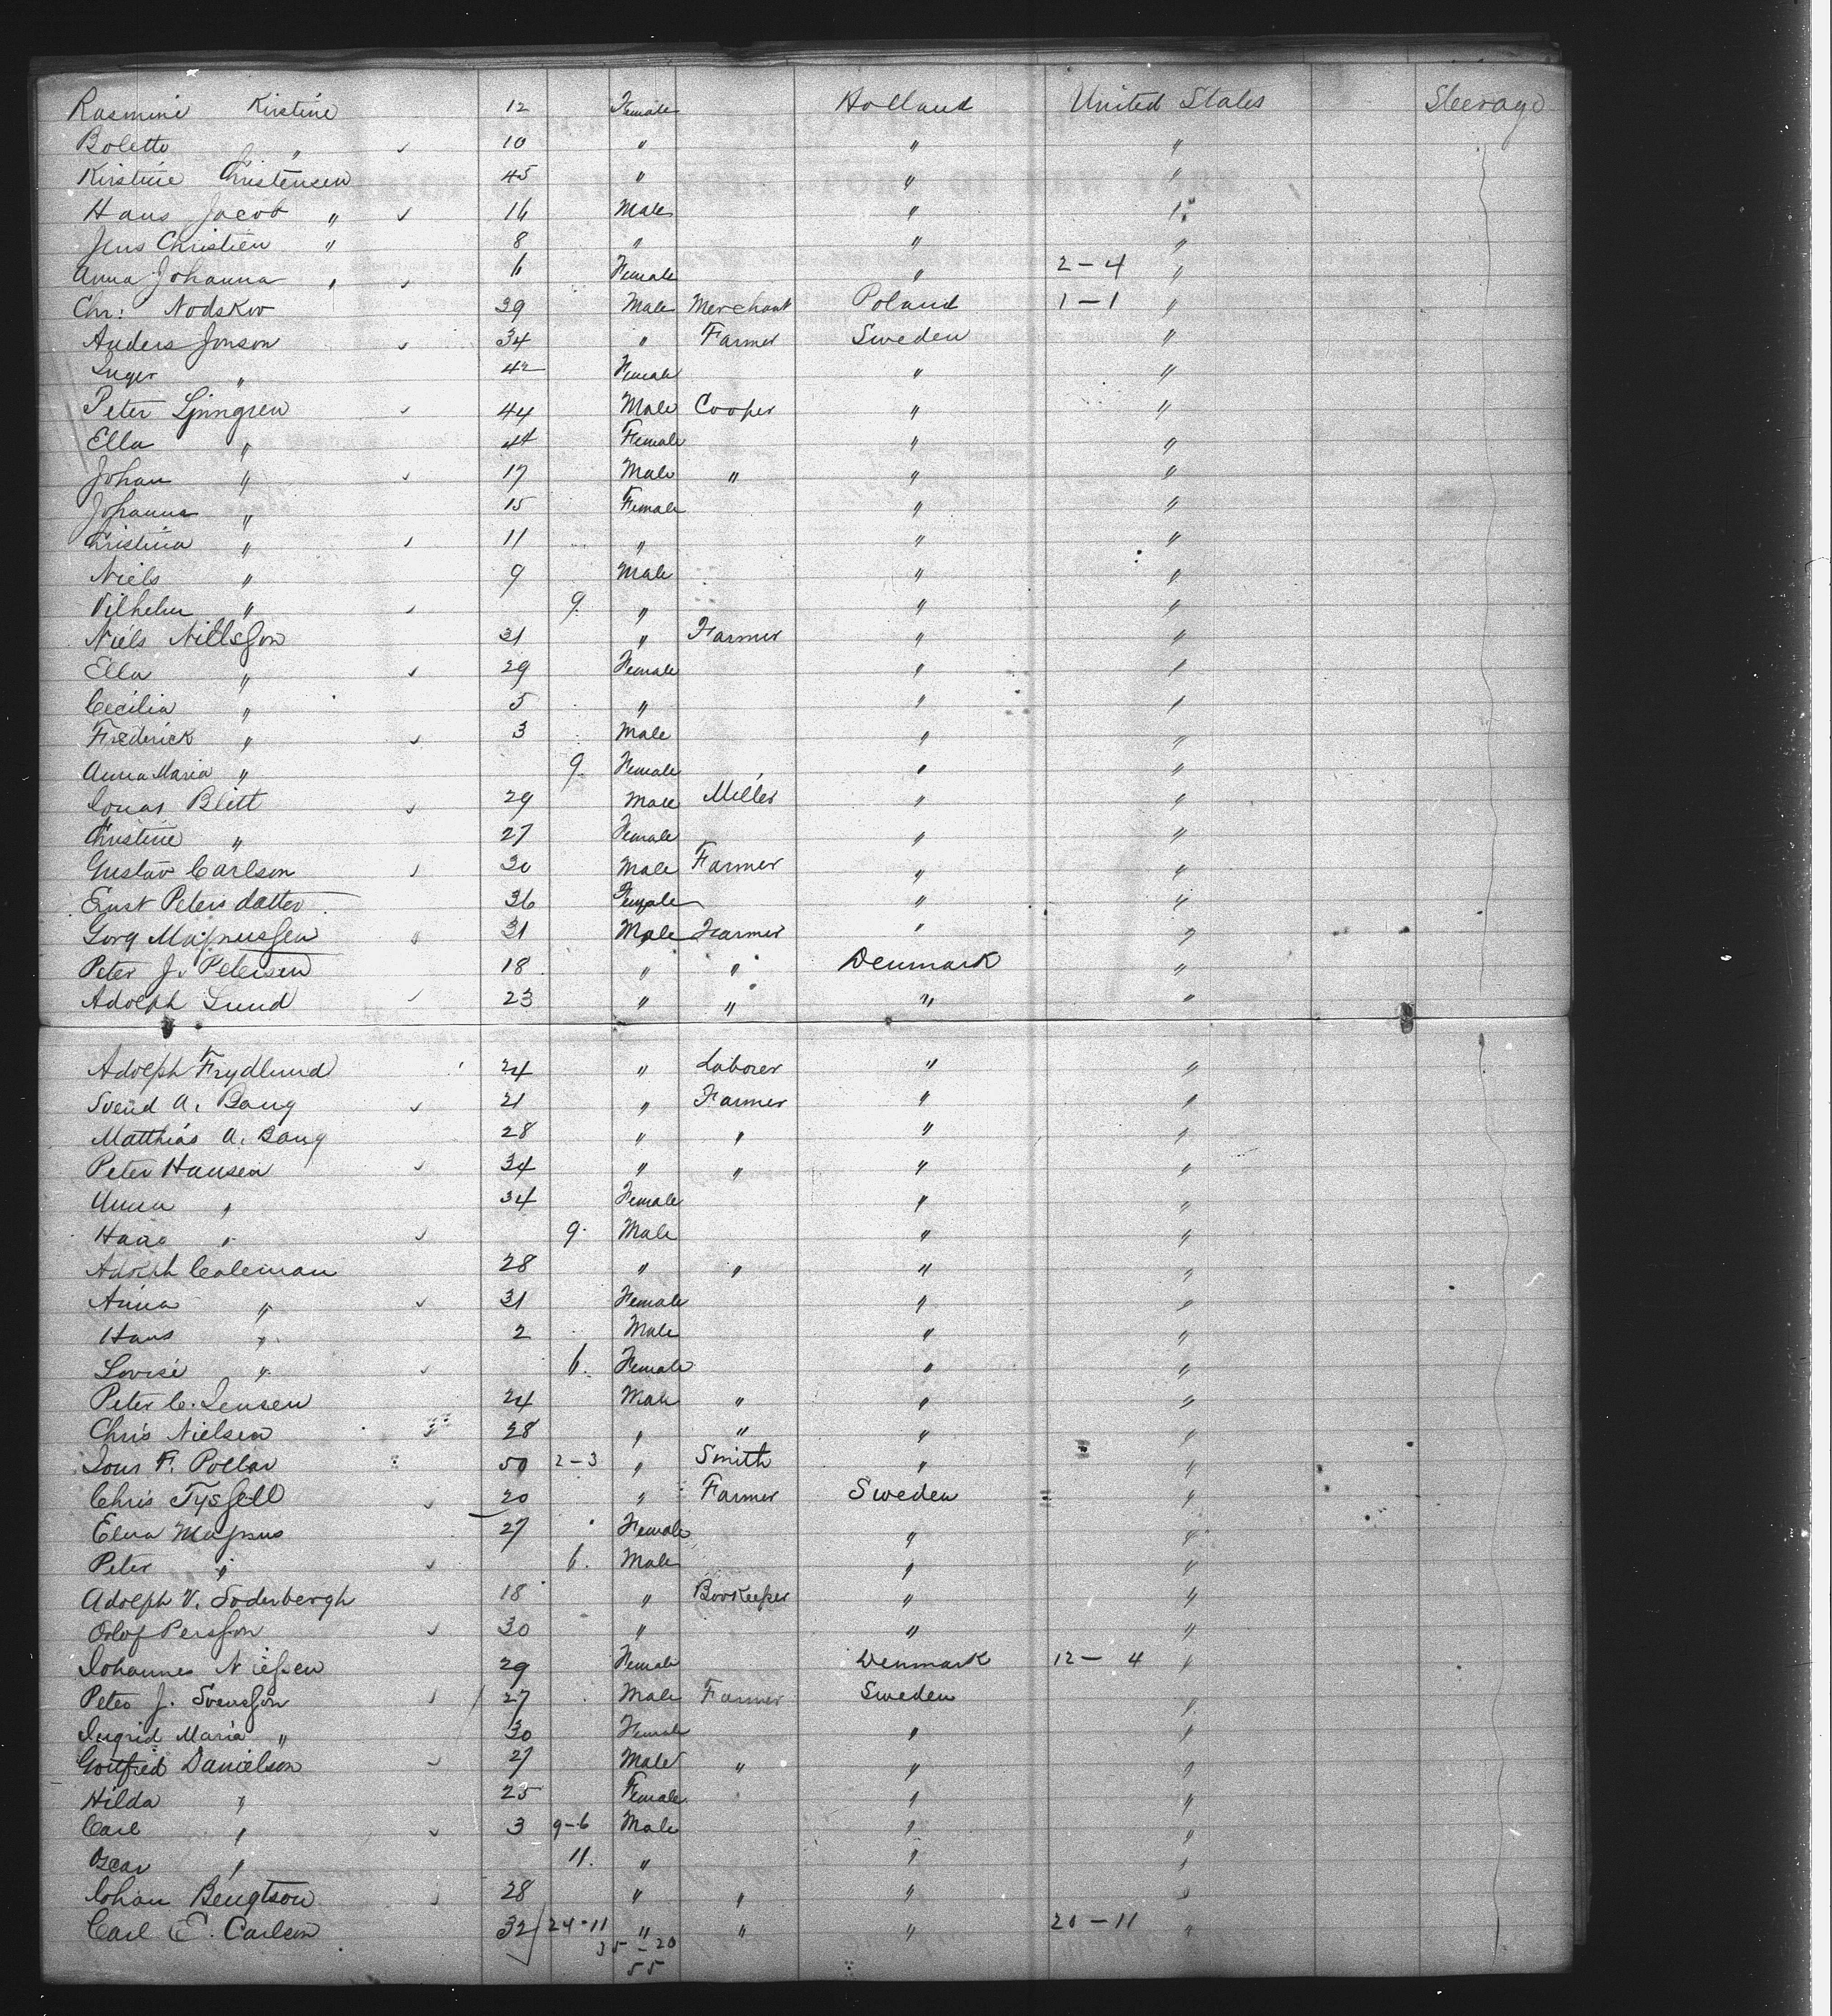 Rasmine Kirstine 12 Female Holland United States Steerage
Bolette " 10 " " "
Kirstine Christensen 45 " " "
Hans Jacob " 16 Male " "
Jens Christien " 8 " " "
Anna Johanna " 6 Female " 2-4 "
Chr: Nodskov 39 Male Merchant Poland 1-1 "
Anders Jonson 34 " Farmer Sweden "
Inger " 42 Female " "
Peter Ljnngren 44 Male Cooper " "
Ella " 44 Female " "
Johan " 17 Male " " "
Johanna " 15 Female " "
Cristina " 11 " " "
Niels " 9 Male " "
Vilhelm " 9. " " "
Niels Nillsson 31 " Farmer " "
Ella " 29 Female " "
Cecilia " 5 " " "
Frederick " 3 Male " "
Anna Maria " 9. Female " "
Jonas Blitt 29 Male Miller " "
Christine " 27 Female " "
Gustav Carlson 30 Male Farmer " "
Petersdatter 36 Female " "
Magnussen 31 Male Farmer " "
Peter J. Petersen 18 " " Denmark "
Adolph Lund 23 " " " "
Adolph Frydlund 24 " Laborer " "
Svend A. Bang 21 " Farmer " "
Matthias A. Bang 28 " " " "
Peter Hansen 34 " " " "
Anna " 34 Female " "
" 9. Male " "
Adolph Coleman 28 " " " "
Anna " 31 Female " "
Hans " 2 Male " "
Lovise " 6. Female " "
Peter C. Jensen 24 Male " " "
Chris Nielsen 28 " " " "
F. 50 2-3 " Smith " "
Chris Tyssell 20 " Farmer Sweden "
Elna Magnus 27 Female " "
Peter " 6. Male " "
Adolph V. Soderbergh 18 " Bookeeper " "
Orlof Persson 30 " " "
Johannes Nielsen 29 Female Denmark 12-4 "
Peter J. Svensson 27 Male Farmer Sweden "
Ingrid Maria " 30 Female " "
Gottfried Danielson 27 Male " " "
Hilda " 25 Female " "
Carl " 3 9-6 Male " "
Oscar " 11. " " "
Johan Bengtson 28 " " " "
Carl E. Carlson 32 24-11 " " " 20-11 "
35-20
55